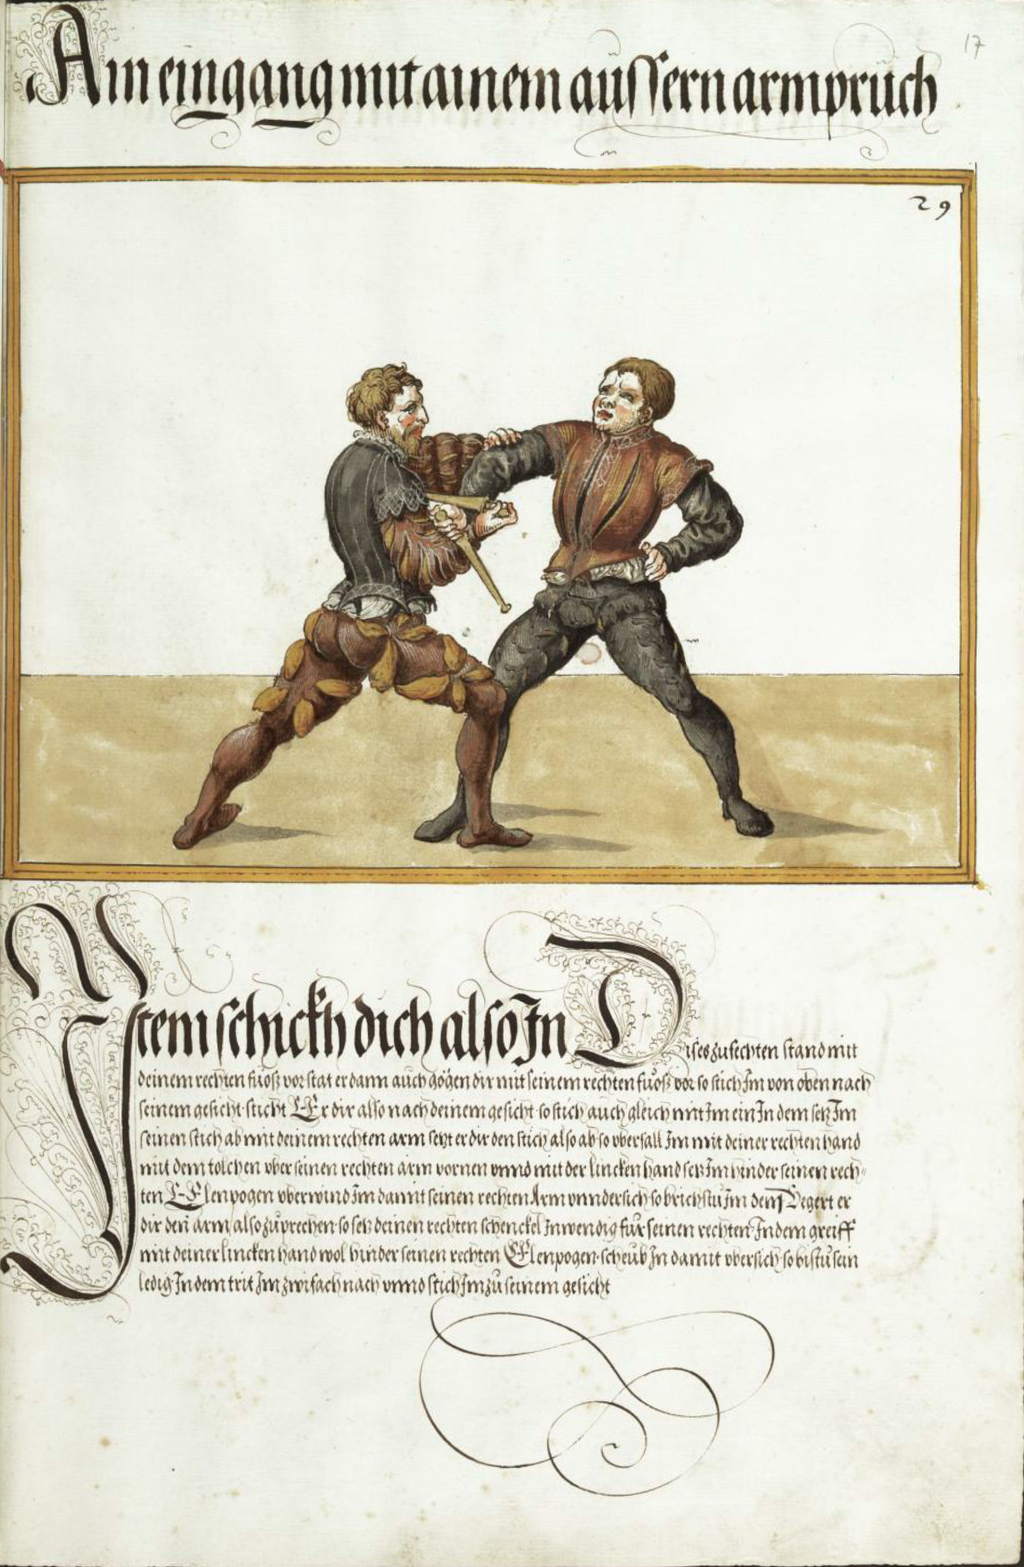 17
Ain eingang mit ainem aüssern armpruch
29
Item schickh dich also In Dises zufechten stand mit
deinem rechten fuoß vor stat er dann auch gögen dir mit seinem rechten fuoß vor so stich Im von oben nach
seinem gesicht sticht Er dir also nach deinem gesicht so stich auch gleich mit Im ein In dem setz Im
seinen stich ab mit deinem rechten arm setzt er dir den stich also ab so vberfall Im mit deiner rechten hand
mit dem tolchen vber seinen rechten arm vornen vnnd mit der lincken hand setz Im hinder seinen rech-
ten Elenpogen vberwind Im damit seinen rechten Arm vnndersich so brichstu Im den Begert er
dir den arm also zuprechen so setz deinen rechten schenckel Inwendig für seinen rechten Indem greiff
mit deiner lincken hand wol hinder seinen rechten Elenpogen scheub In damit vbersich so bistu sein
ledig Indem trit Im zwifach nach vnnd stich Im zu seinem gesicht